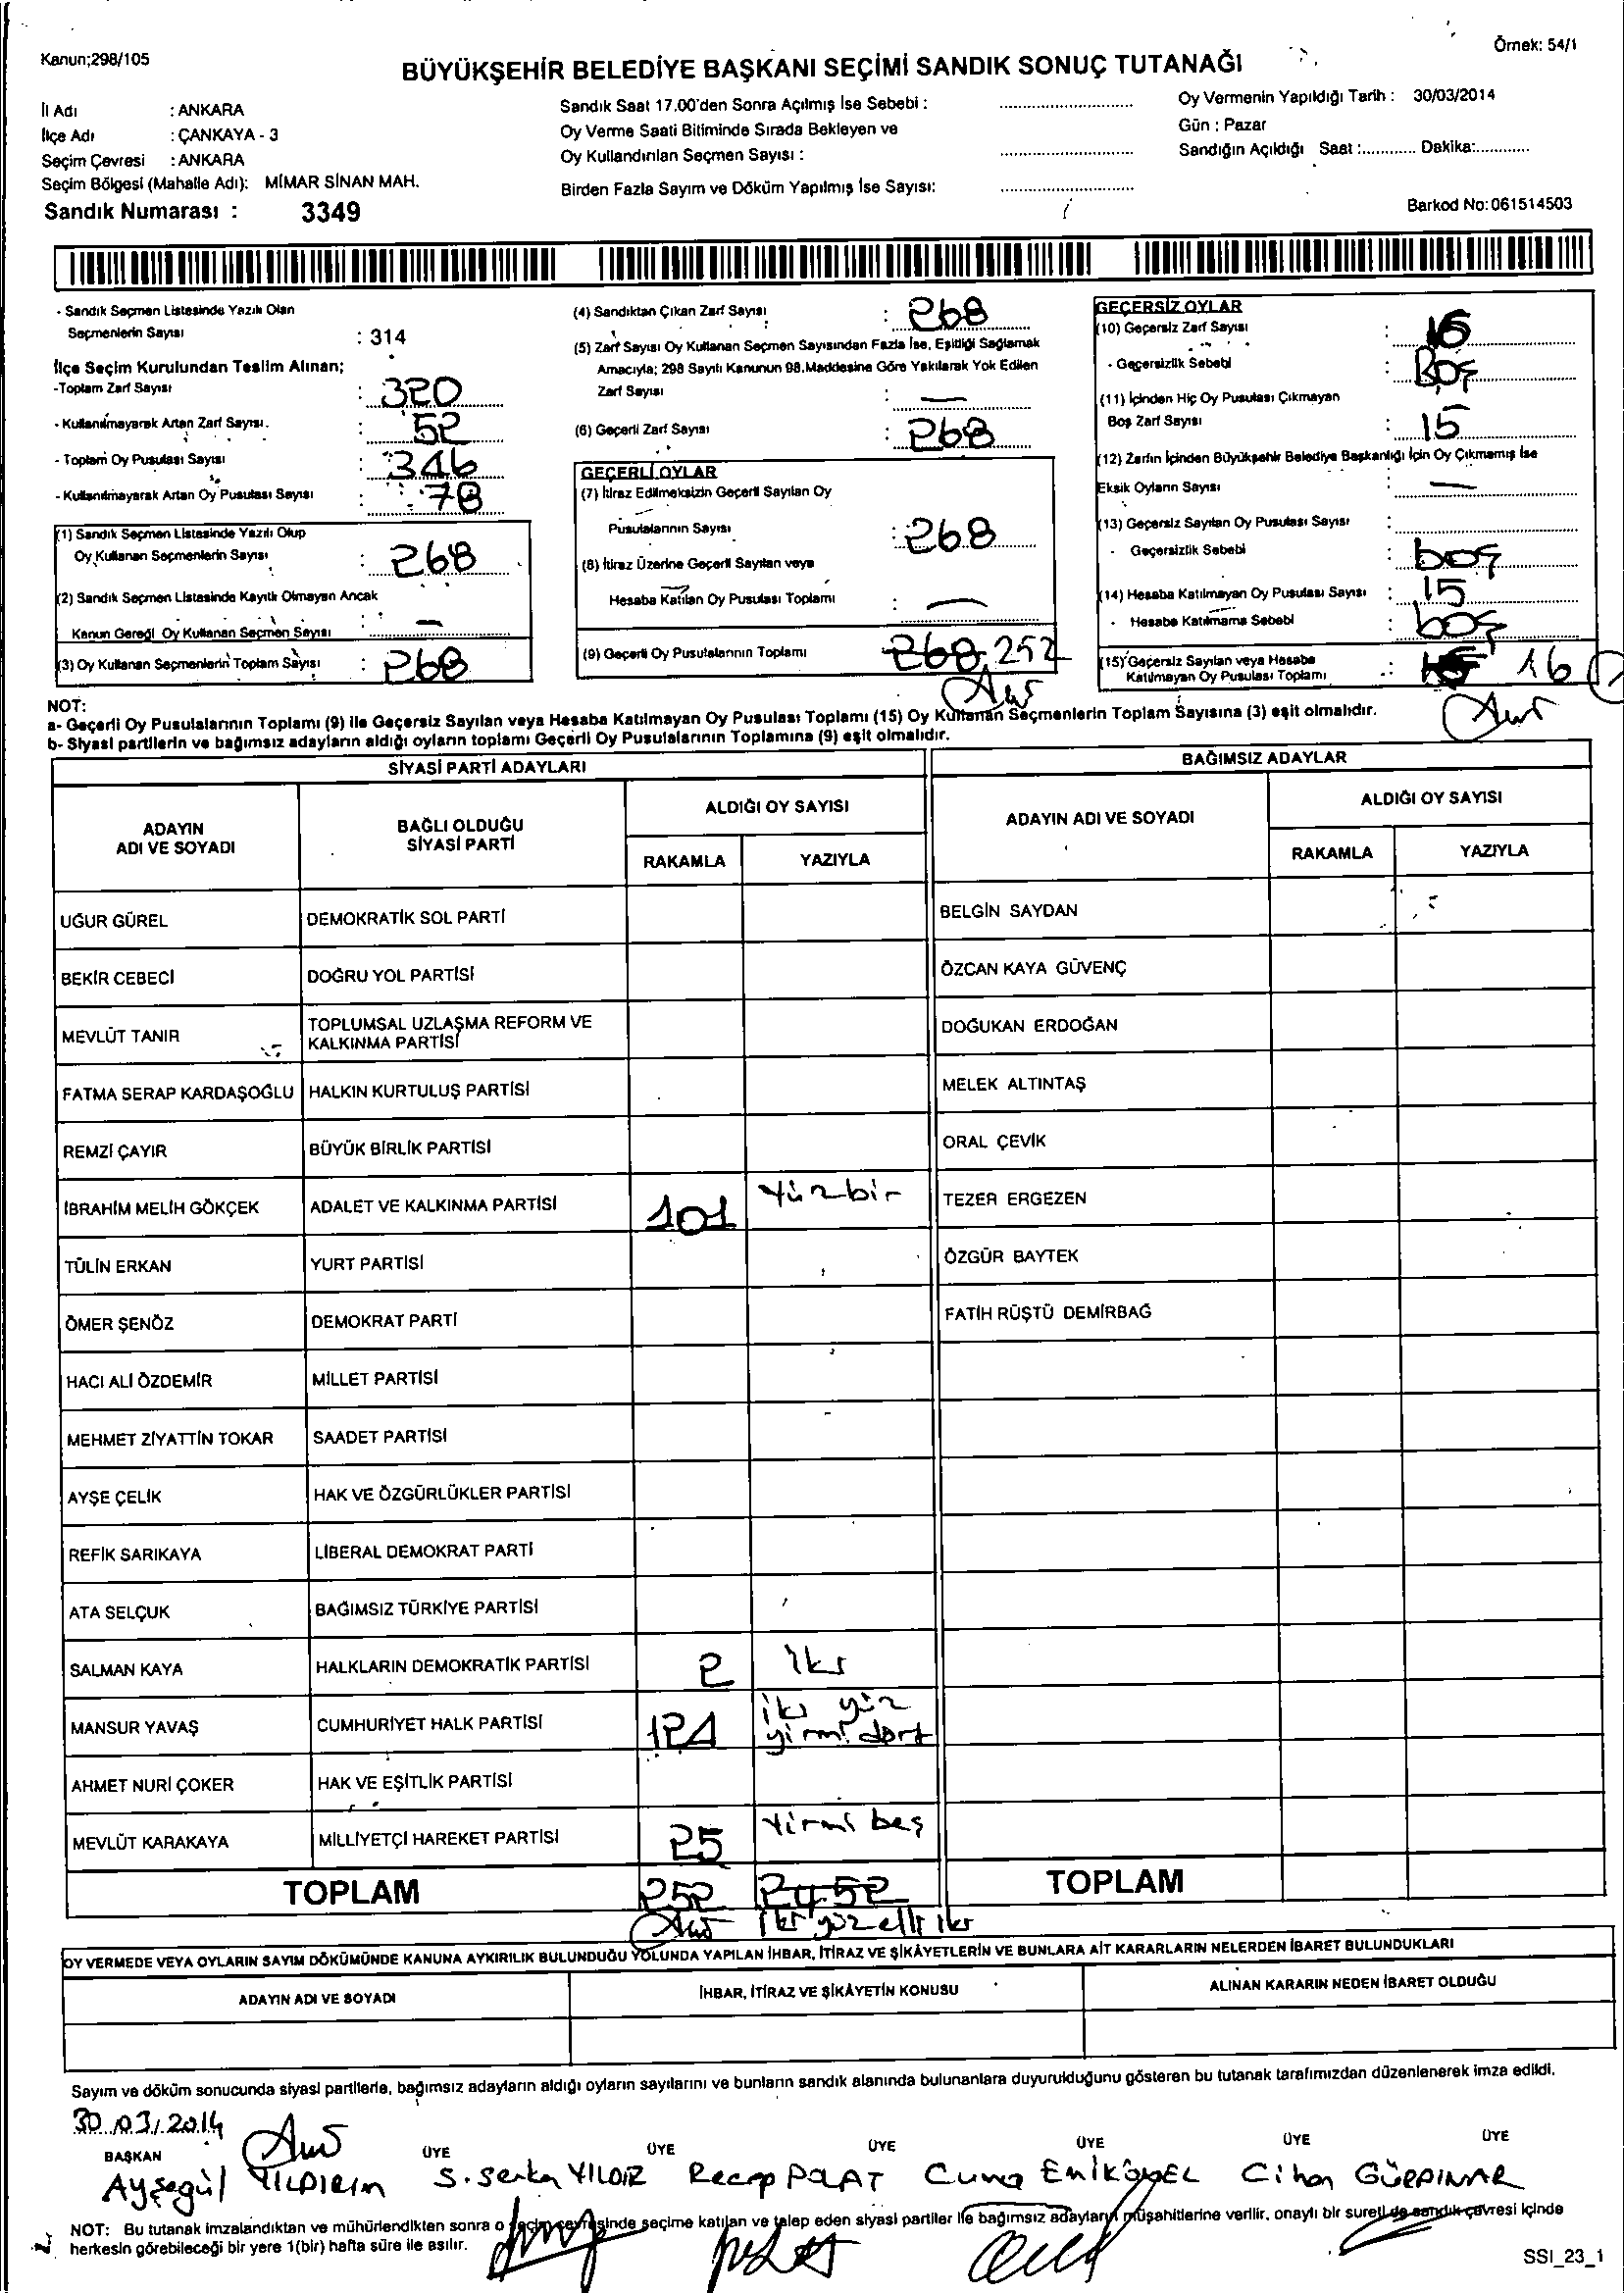 Kanun;298/105
Örnek: 54/1
BÜYÜKŞEHİR BELEDİYE BAŞKANI SEÇİMİ SANDIK SONUÇ TUTANAĞI
İl Adı : ANKARA
İlçe Adı : ÇANKAYA - 3
Seçim Çevresi : ANKARA
Seçim Bölgesi (Mahalle Adı): MİMAR SİNAN MAH.
Sandık Numarası : 3349
Sandık Saat 17.00'den Sonra Açılmış İse Sebebi :
Oy Verme Saati Bitiminde Sırada Bekleyen ve
Oy Kullandırılan Seçmen Sayısı :
Birden Fazla Sayım ve Döküm Yapılmış İse Sayısı:
Oy Vermenin Yapıldığı Tarih : 30/03/2014
Gün : Pazar
Sandığın Açıldığı Saat :............ Dakika:............
Barkod No:061514503
- Sandık Seçmen Listesinde Yazılı Olan
Seçmenlerin Sayısı : 314
İlçe Seçim Kurulundan Teslim Alınan;
-Toplam Zarf Sayısı : 320
- Kullanılmayarak Artan Zarf Sayısı. : 52
- Toplam Oy Pusulası Sayısı : 346
- Kullanılmayarak Artan Oy Pusulası Sayısı : 78
(1) Sandık Seçmen Listesinde Yazılı Olup
Oy Kullanan Seçmenlerin Sayısı : 268
(2) Sandık Seçmen Listesinde Kayıtlı Olmayan Ancak
Kanun Gereği Oy Kullanan Seçmen Sayısı —
(3) Oy Kullanan Seçmenlerin Toplam Sayısı : 268
(4) Sandıktan Çıkan Zarf Sayısı : 268
(5) Zarf Sayısı Oy Kullanan Seçmen Sayısından Fazla İse, Eşitliği Sağlamak
Amacıyla; 298 Sayılı Kanunun 98.Maddesine Göre Yakılarak Yok Edilen
Zarf Sayısı : —
(6) Geçerli Zarf Sayısı : 268
GEÇERLİ OYLAR
(7) İtiraz Edilmeksizin Geçerli Sayılan Oy
Pusulalarının Sayısı : 268
(8) İtiraz Üzerine Geçerli Sayılan veya
Hesaba Katılan Oy Pusulası Toplamı : —
(9) Geçerli Oy Pusulalarının Toplamı 268 252
GEÇERSİZ OYLAR
(10) Geçersiz Zarf Sayısı : 16
- Geçersizlik Sebebi : Boş
(11) İçinden Hiç Oy Pusulası Çıkmayan
Boş Zarf Sayısı : 15
(12) Zarfın İçinden Büyükşehir Belediye Başkanlığı İçin Oy Çıkmamış İse
Eksik Oyların Sayısı : —
(13) Geçersiz Sayılan Oy Pusulası Sayısı :
- Geçersizlik Sebebi : boş
(14) Hesaba Katılmayan Oy Pusulası Sayısı : 15
- Hesaba Katılmama Sebebi : boş
(15) Geçersiz Sayılan veya Hesaba
Katılmayan Oy Pusulası Toplamı : 16
NOT:
a- Geçerli Oy Pusulalarının Toplamı (9) ile Geçersiz Sayılan veya Hesaba Katılmayan Oy Pusulası Toplamı (15) Oy Kullanan Seçmenlerin Toplam Sayısına (3) eşit olmalıdır.
b- Siyasi partilerin ve bağımsız adayların aldığı oyların toplamı Geçerli Oy Pusulalarının Toplamına (9) eşit olmalıdır.
SİYASİ PARTİ ADAYLARI
BAĞIMSIZ ADAYLAR
ADAYIN
ADI VE SOYADI
BAĞLI OLDUĞU
SİYASİ PARTİ
ALDIĞI OY SAYISI
RAKAMLA YAZIYLA
ADAYIN ADI VE SOYADI
ALDIĞI OY SAYISI
RAKAMLA YAZIYLA
UĞUR GÜREL DEMOKRATİK SOL PARTİ BELGİN SAYDAN
BEKİR CEBECİ DOĞRU YOL PARTİSİ ÖZCAN KAYA GÜVENÇ
MEVLÜT TANIR TOPLUMSAL UZLAŞMA REFORM VE
KALKINMA PARTİSİ DOĞUKAN ERDOĞAN
FATMA SERAP KARDAŞOĞLU HALKIN KURTULUŞ PARTİSİ MELEK ALTINTAŞ
REMZİ ÇAYIR BÜYÜK BİRLİK PARTİSİ ORAL ÇEVİK
İBRAHİM MELİH GÖKÇEK ADALET VE KALKINMA PARTİSİ 101 Yüzbir TEZER ERGEZEN
TÜLİN ERKAN YURT PARTİSİ ÖZGÜR BAYTEK
ÖMER ŞENÖZ DEMOKRAT PARTİ FATİH RÜŞTÜ DEMİRBAĞ
HACI ALİ ÖZDEMİR MİLLET PARTİSİ
MEHMET ZİYATTİN TOKAR SAADET PARTİSİ
AYŞE ÇELİK HAK VE ÖZGÜRLÜKLER PARTİSİ
REFİK SARIKAYA LİBERAL DEMOKRAT PARTİ
ATA SELÇUK BAĞIMSIZ TÜRKİYE PARTİSİ
SALMAN KAYA HALKLARIN DEMOKRATİK PARTİSİ 2 iki
MANSUR YAVAŞ CUMHURİYET HALK PARTİSİ 124 iki yüz
yirmi dört
AHMET NURİ ÇOKER HAK VE EŞİTLİK PARTİSİ
MEVLÜT KARAKAYA MİLLİYETÇİ HAREKET PARTİSİ 25 Yirmi beş
TOPLAM 252 2452 TOPLAM
iki yüz elli iki
OY VERMEDE VEYA OYLARIN SAYIM DÖKÜMÜNDE KANUNA AYKIRILIK BULUNDUĞU YOLUNDA YAPILAN İHBAR, İTİRAZ VE ŞİKÂYETLERİN VE BUNLARA AİT KARARLARIN NELERDEN İBARET BULUNDUKLARI
ADAYIN ADI VE SOYADI İHBAR, İTİRAZ VE ŞİKÂYETİN KONUSU ALINAN KARARIN NEDEN İBARET OLDUĞU
Sayım ve döküm sonucunda siyasi partilerle, bağımsız adayların aldığı oyların sayılarını ve bunların sandık alanında bulunanlara duyurulduğunu gösteren bu tutanak tarafımızdan düzenlenerek imza edildi.
30.03/2014
BAŞKAN ÜYE ÜYE ÜYE ÜYE ÜYE ÜYE
Ayşegül YILDIRIM S. Serkan YILDIZ Recep POLAT Cuma Cihan GÜRPINAR
NOT: Bu tutanak imzalandıktan ve mühürlendikten sonra o seçim çevresinde seçime katılan ve talep eden siyasi partiler ile bağımsız adayların müşahitlerine verilir, onaylı bir sureti de sandık çevresi içinde
herkesin görebileceği bir yere 1(bir) hafta süre ile asılır.
SSI_23_1